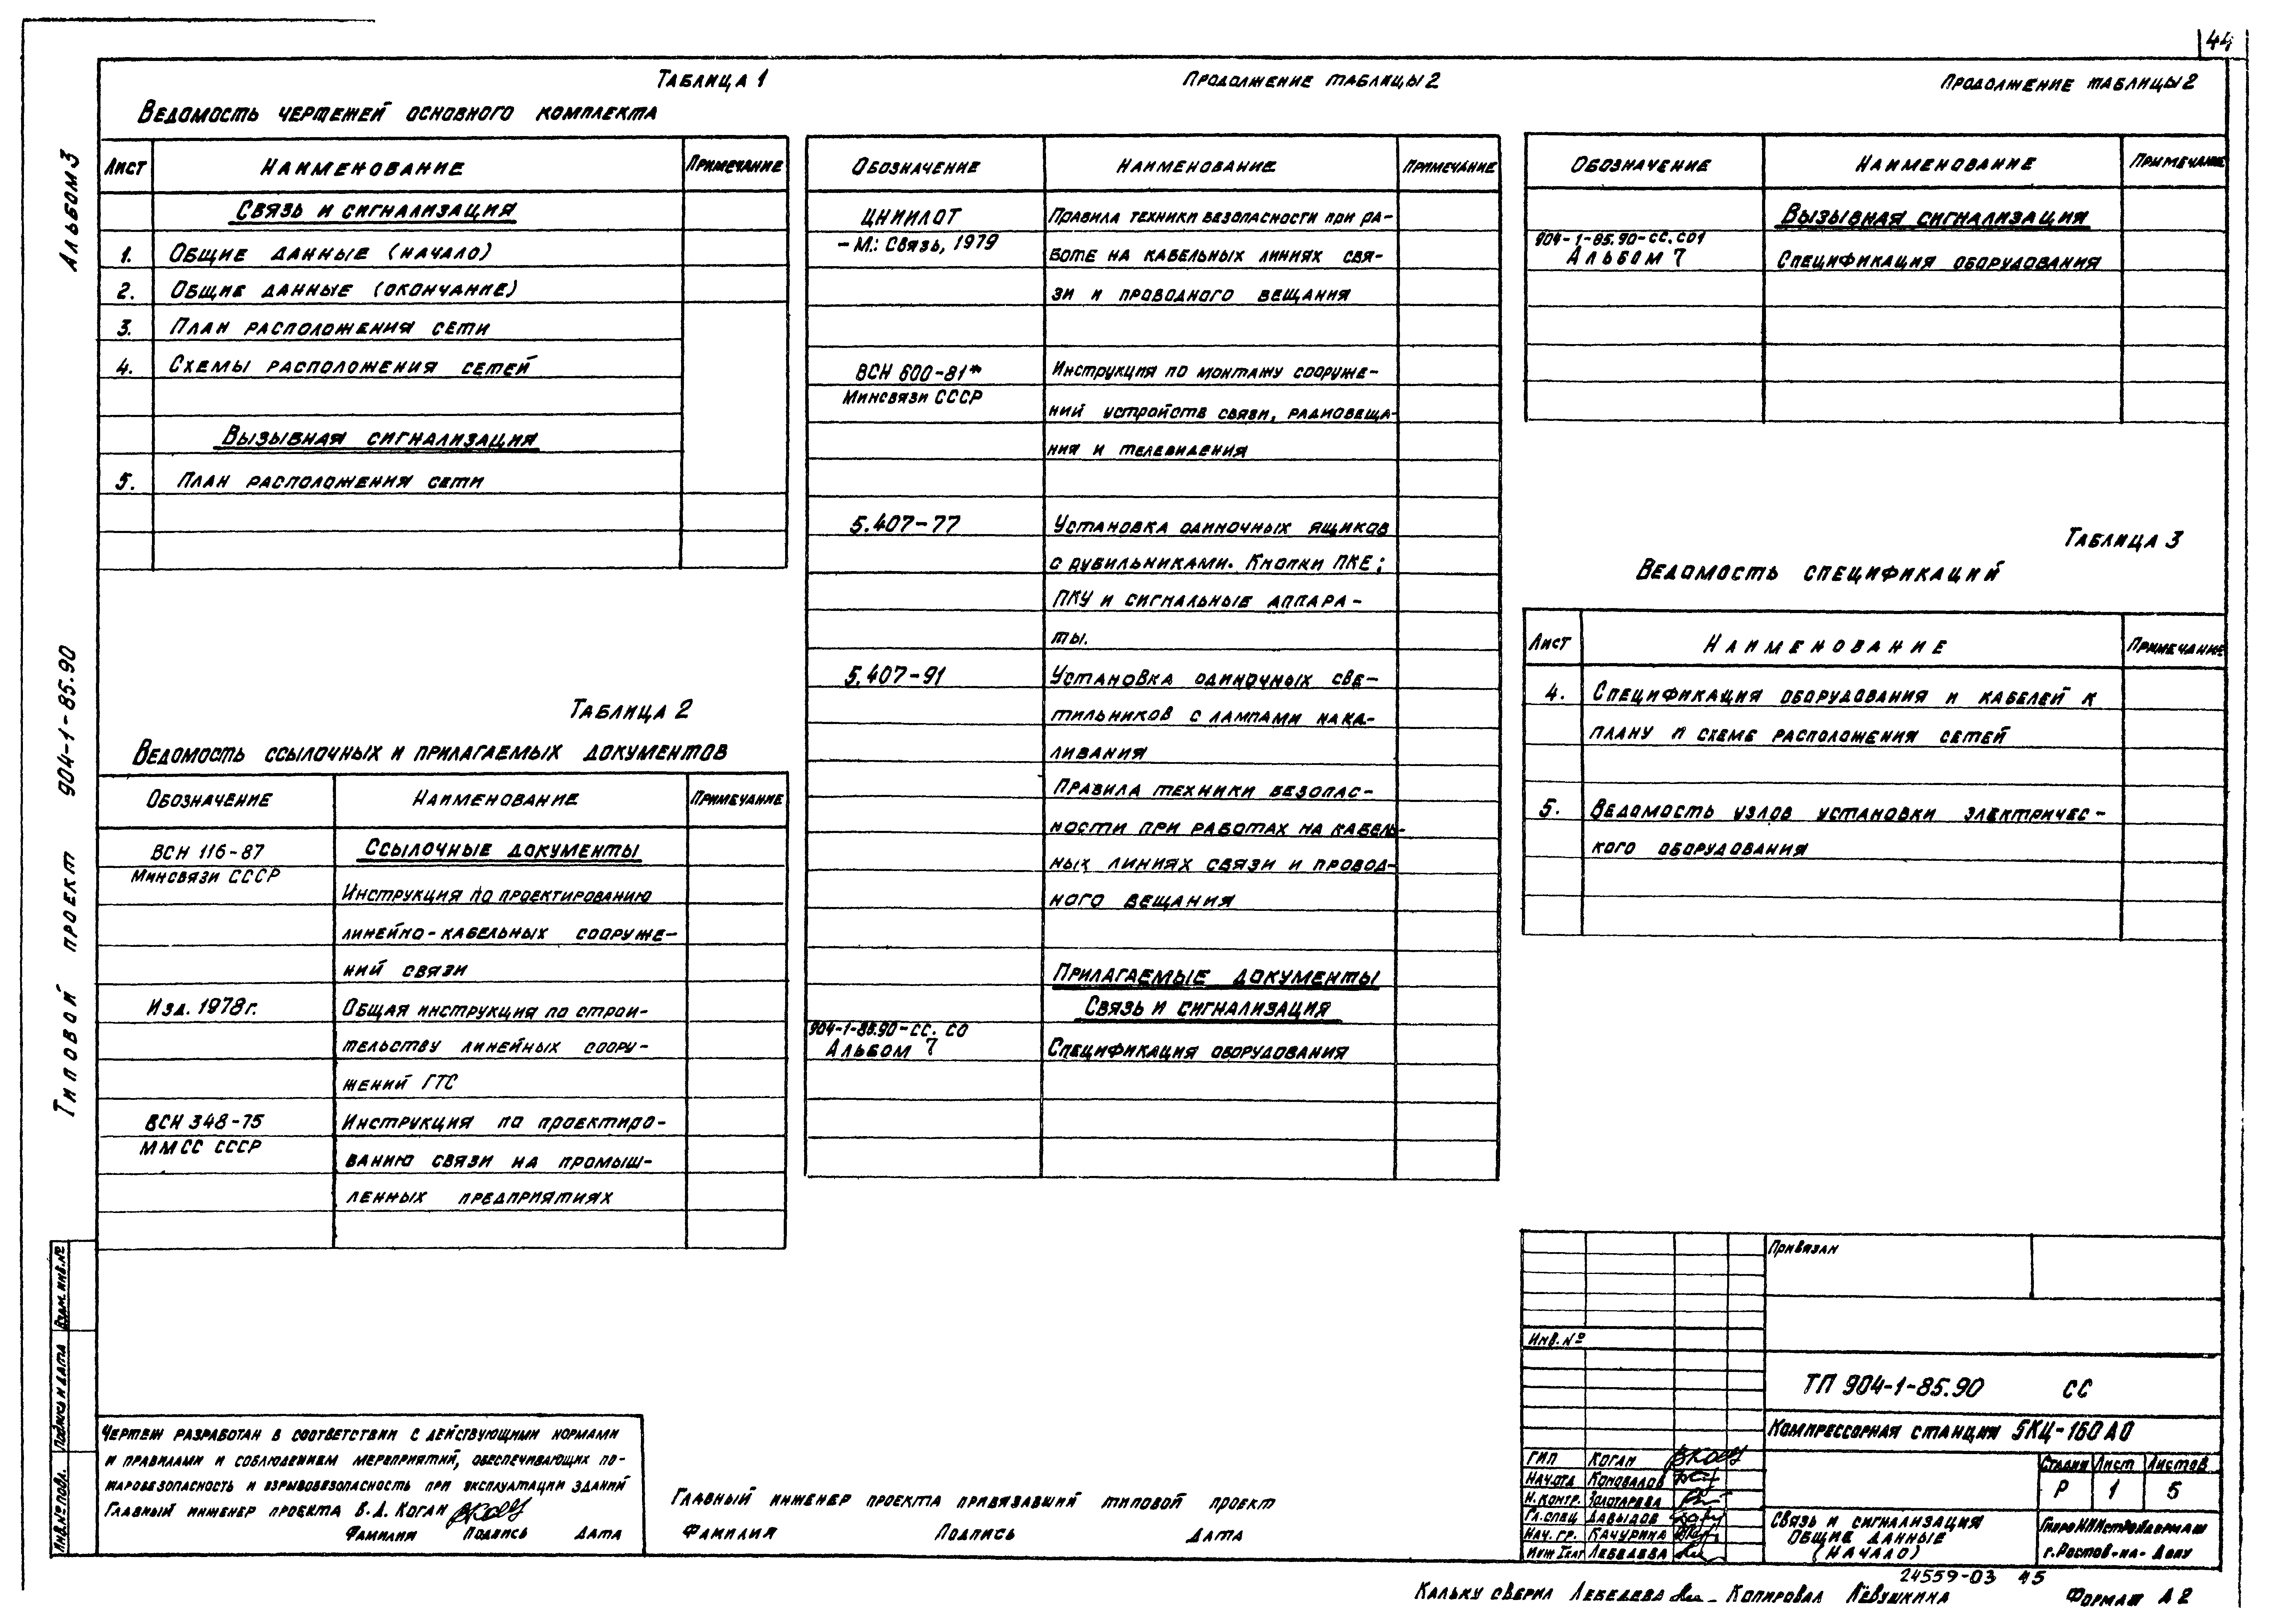 44
Альбом 3
Типовой проект 904-1-85.90
Таблица 1
Ведомость чертежей основного комплекта
Лист Наименование Примечание
Связь и сигнализация
1. Общие данные (начало)
2. Общие данные (окончание)
3. План расположения сети
4. Схемы расположения сетей
Вызывная сигнализация
5. План расположения сети
Таблица 2
Ведомость ссылочных и прилагаемых документов
Обозначение Наименование Примечание
Ссылочные документы
ВСН 116-87
Минсвязи СССР
Инструкция по проектированию
линейно-кабельных сооруже-
ний связи
Изд. 1978г. Общая инструкция по строи-
тельству линейных соору-
жений ГТС
ВСН 348-75 Инструкция по проектиро-
ММСС СССР
ванию связи на промыш-
ленных предприятиях
Продолжение таблицы 2
Обозначение Наименование Примечание
ЦНИИЛОТ Правила техники безопасности при ра-
- М.: Связь, 1979
боте на кабельных линиях свя-
зи и проводного вещания
ВСН 600-81* Инструкция по монтажу сооруже-
Минсвязи СССР
ний устройств связи, радиовеща-
ния и телевидения
5.407-77 Установка одиночных ящиков
с рубильниками. Кнопки ПКЕ;
ПКУ и сигнальные аппара-
ты.
5.407-91 Установка одиночных све-
тильников с лампами нака-
ливания
Правила техники безопас-
ности при работах на кабель-
ных линиях связи и провод-
ного вещания
Прилагаемые документы
Связь и сигнализация
904-1-85.90-СС. СО
Альбом 7 Спецификация оборудования
Продолжение таблицы 2
Обозначение Наименование Примечание
Вызывная сигнализация
904-1-85.90-СС.СО1
Альбом 7 Спецификация оборудования
Таблица 3
Ведомость спецификаций
Лист Наименование Примечание
4. Спецификация оборудования и кабелей к
плану и схеме расположения сетей
5. Ведомость узлов установки электричес-
кого оборудования
Взам. инв.№
Подпись и дата
Инв.№ подл.
Чертеж разработан в соответствии с действующими нормами
и правилами и соблюдением мероприятий, обеспечивающих по-
жаробезопасность и взрывобезопасность при эксплуатации зданий
Главный инженер проекта В.Д. Коган
Фамилия Подпись Дата
Главный инженер проекта привязавший типовой проект
Фамилия Подпись Дата
Привязан
Инв. №
ТП 904-1-85.90 СС
Компрессорная станция 5КЦ-160А0
ГИП Коган
Нач.отд Коновалов
Н.контр. Золотарева
Гл.спец Давыдов
Нач. гр. Качурина
Инж Iкат Лебедева
Стадия Лист Листов
Р 1 5
Связь и сигнализация
Общие данные
(начало)
ГипроНИИстройдормаш
г.Ростов-на-Дону
24559-03 45
Кальку сверил Лебедева Копировал Лёвушкина Формат А2